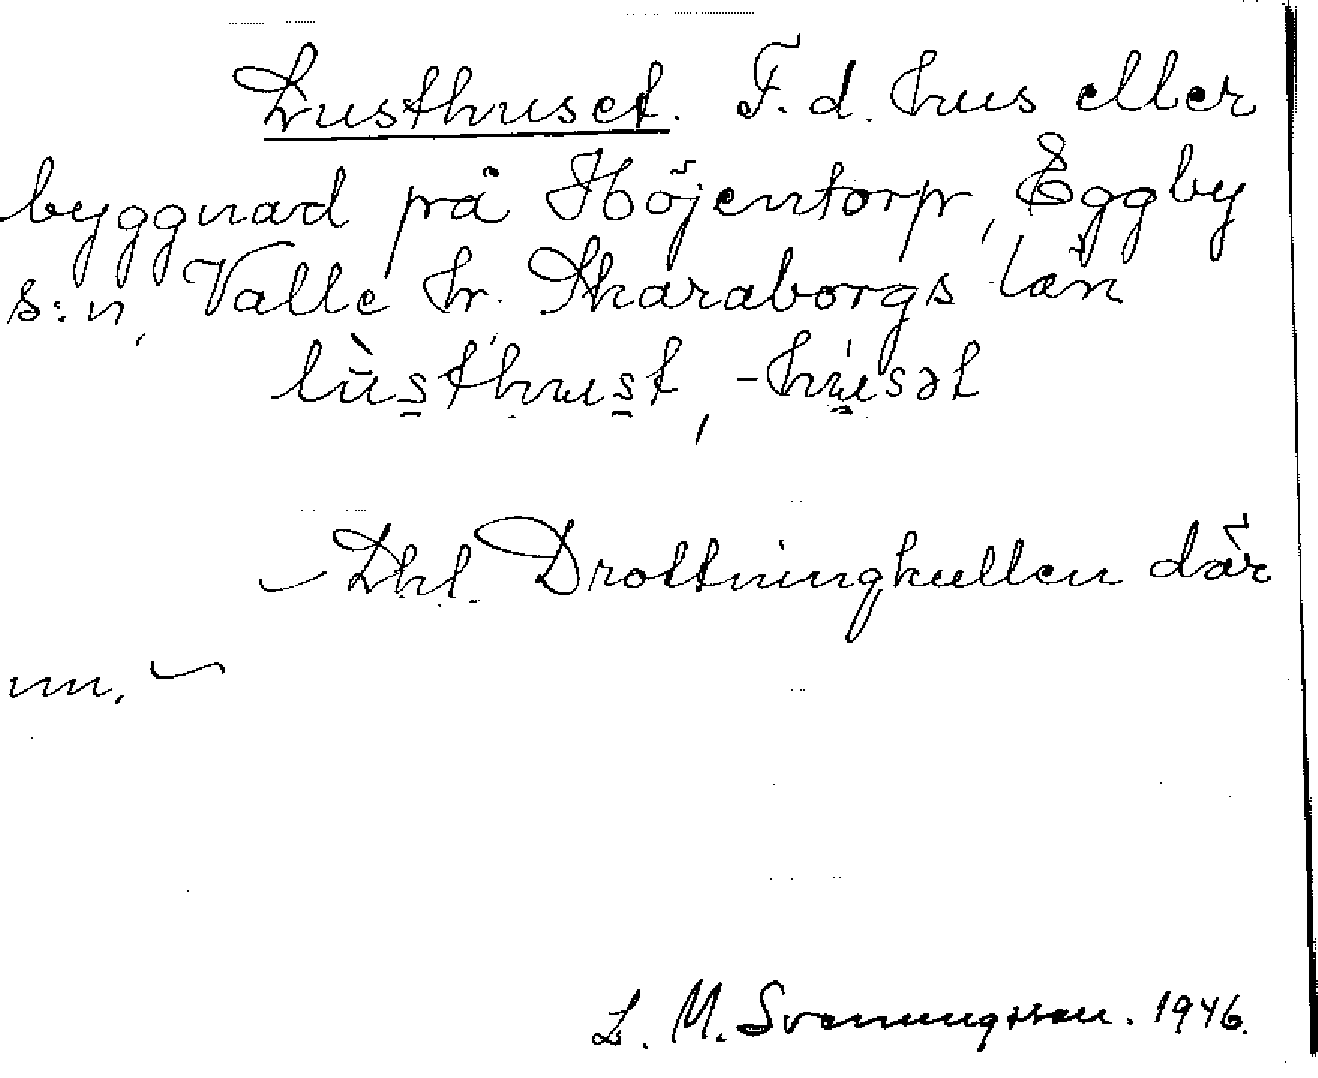 Lusthuset. F. d. hus eller
byggnad på Höjentorp, Eggby
s:n, Valle hr. Skaraborgs län
lùsthust, -húsət
Drottningkullen där
nn.
L. M. Svenungsson. 1946.